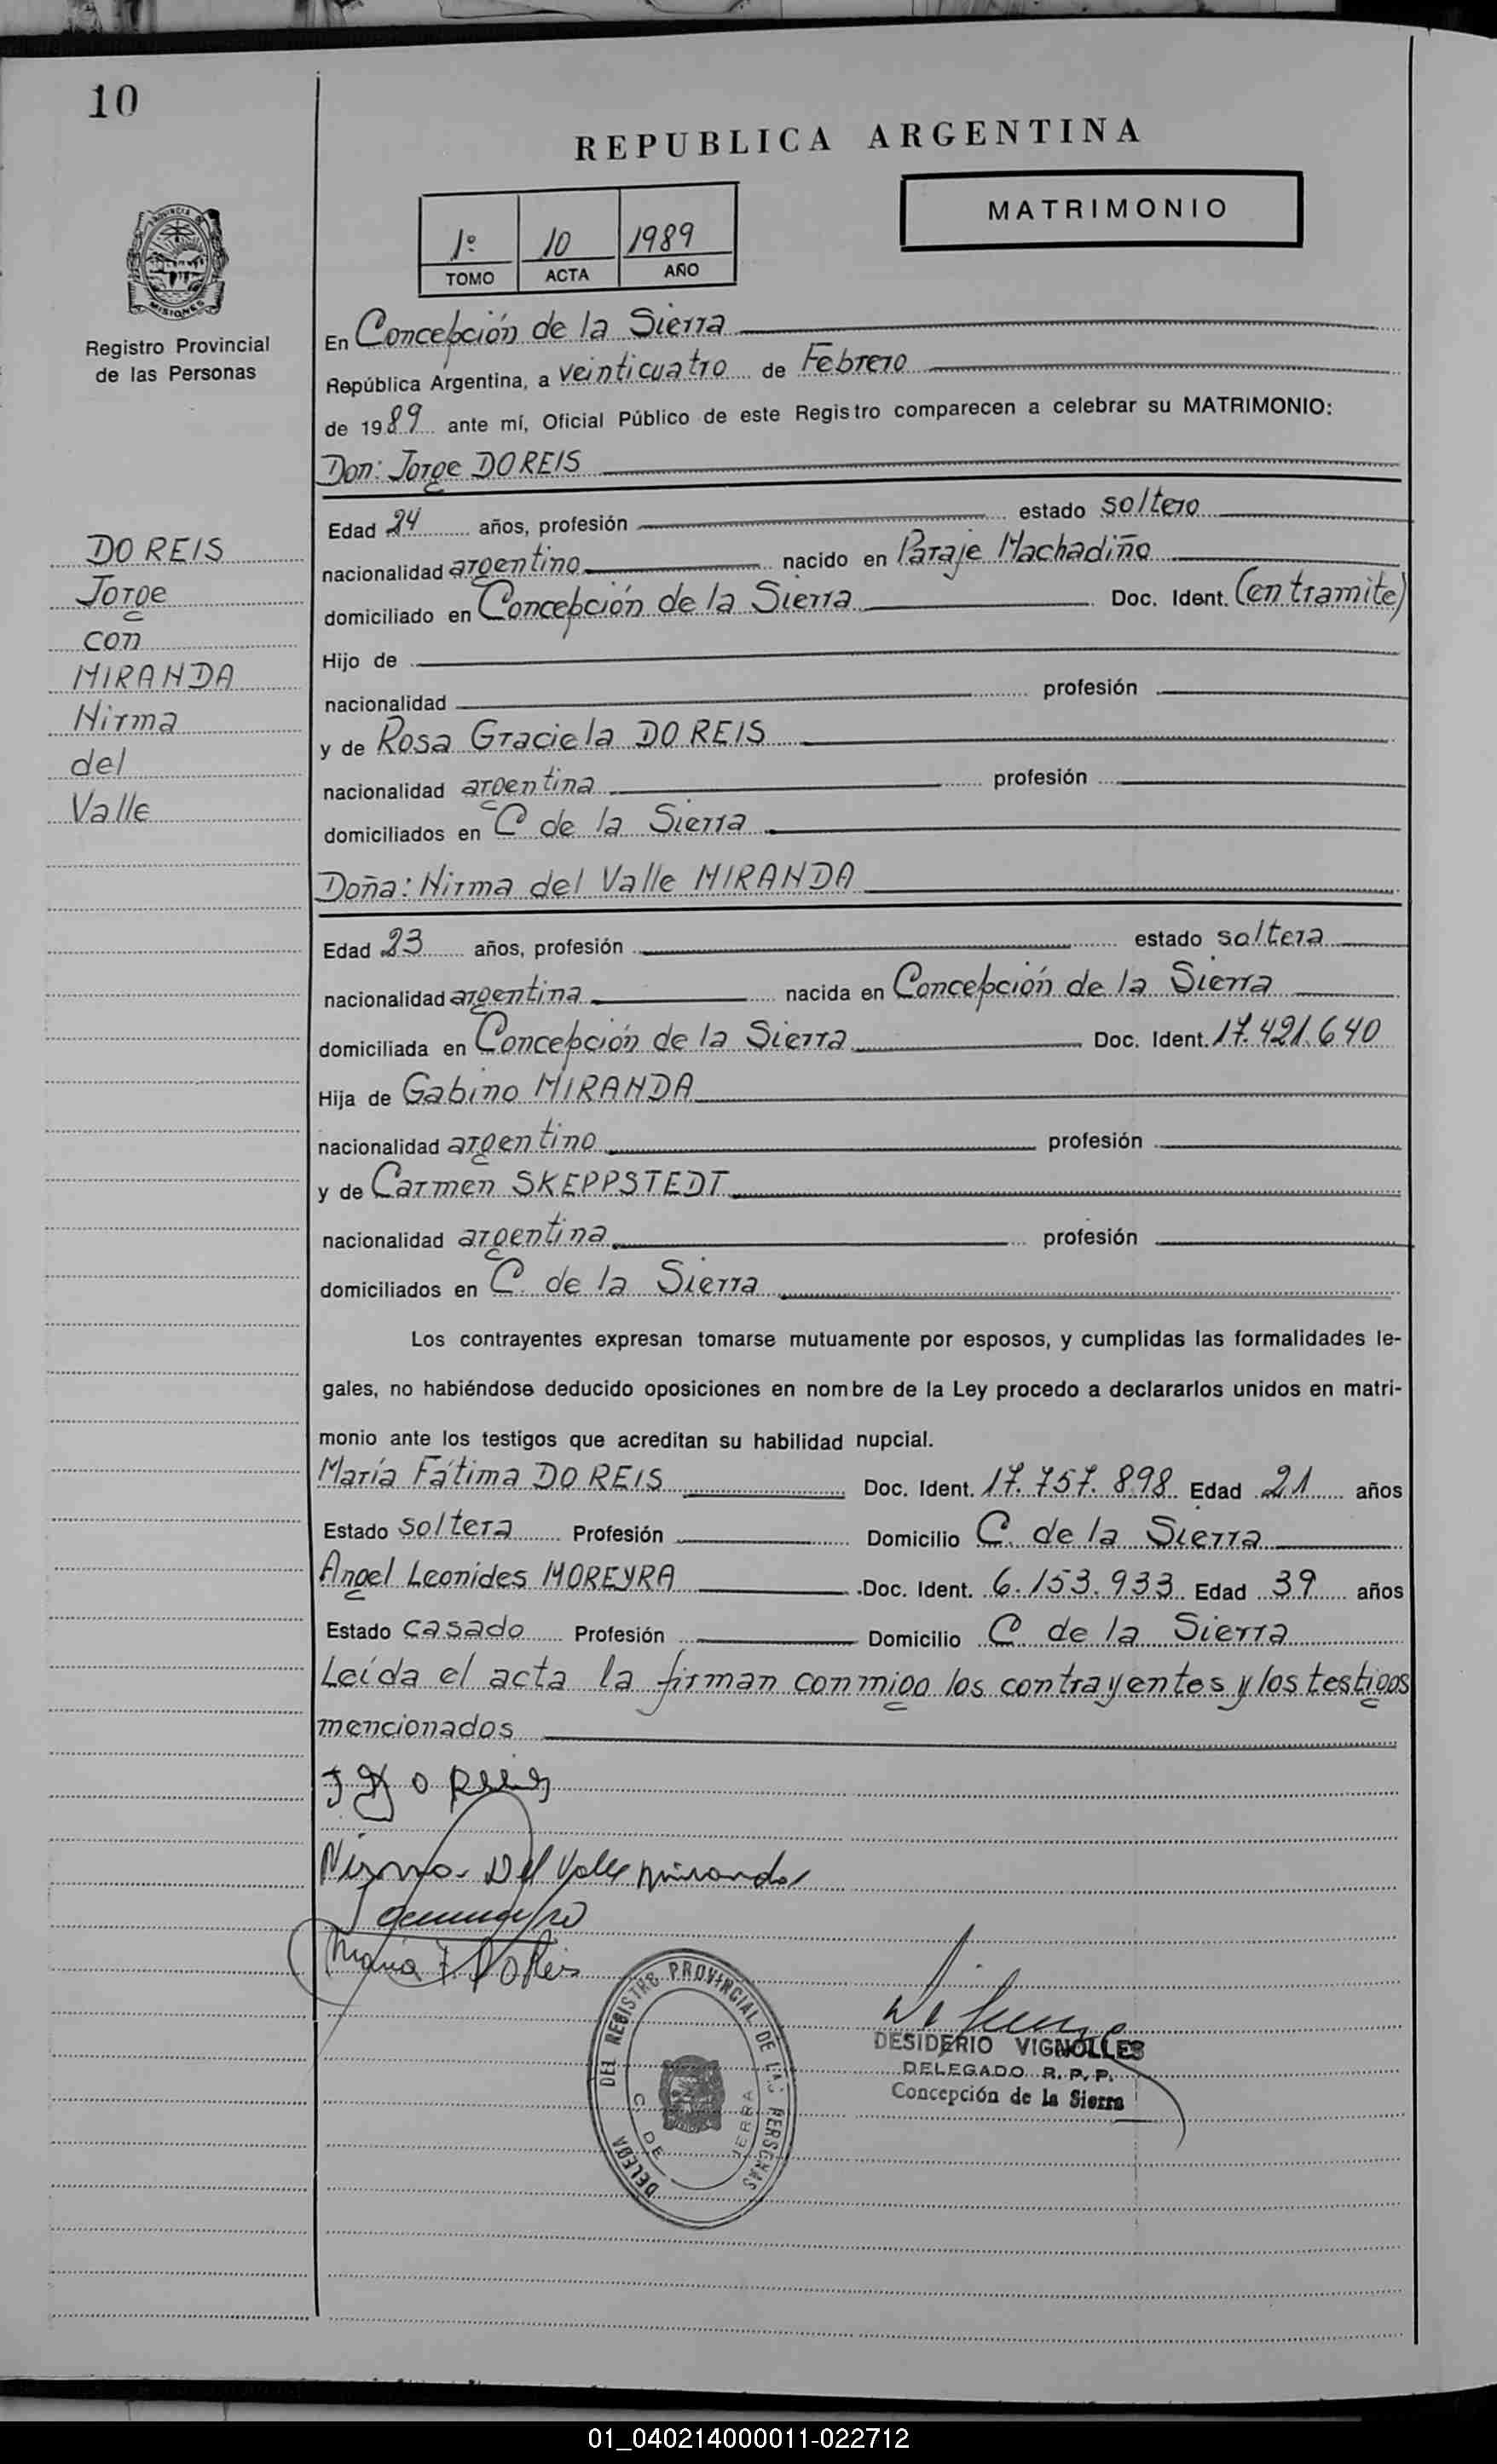 10
REPUBLICA ARGENTINA
MATRIMONIO
1º 10 1989
TOMO ACTA AÑO
PROVINCIA DE
MISIONES
Registro Provincial
de las Personas
DO REIS
Jorge
con
MIRANDA
Nirma
del
Valle
En Concepción de la Sierra
República Argentina, a veinticuatro de Febrero
de 1989 ante mí, Oficial Público de este Registro comparecen a celebrar su MATRIMONIO:
Don: Jorge DO REIS
Edad 24 años, profesión estado soltero
nacionalidad argentino nacido en Paraje Machadiño
domiciliado en Concepción de la Sierra Doc. Ident. (en tramite)
Hijo de
nacionalidad profesión
y de Rosa Graciela DO REIS
nacionalidad argentina profesión
domiciliados en C de la Sierra
Doña: Nirma del Valle MIRANDA
Edad 23 años, profesión estado soltera
nacionalidad argentina nacida en Concepción de la Sierra
domiciliada en Concepción de la Sierra Doc. Ident. 17.421.640
Hija de Gabino MIRANDA
nacionalidad argentino profesión
y de Carmen SKEPPSTEDT
nacionalidad argentina profesión
domiciliados en C. de la Sierra
Los contrayentes expresan tomarse mutuamente por esposos, y cumplidas las formalidades le-
gales, no habiéndose deducido oposiciones en nombre de la Ley procedo a declararlos unidos en matri-
monio ante los testigos que acreditan su habilidad nupcial.
María Fátima DO REIS Doc. Ident. 17.757.898 Edad 21 años
Estado soltera Profesión Domicilio C. de la Sierra
Angel Leonides MOREYRA Doc. Ident. 6.153.933 Edad 39 años
Estado casado Profesión Domicilio C de la Sierra
Leída el acta la firman conmigo los contrayentes y los testigos
mencionados
J Do Reis
Nirma Del Valle Miranda
Maria F. Do Reis
DELEGA DEL REGISTRO PROVINCIAL DE LAS PERSONAS
C DE IERRA
DESIDERIO VIGNOLLES
DELEGADO R. P. P.
Concepción de la Sierra
01_040214000011-022712